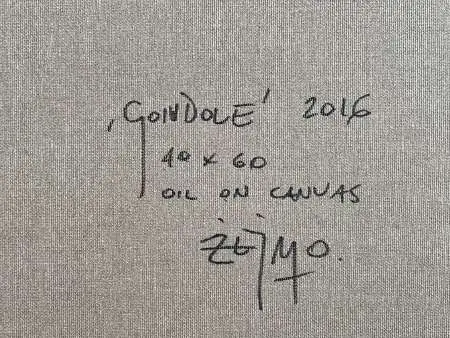 ‚GONDOLE' 2016
40 x 60
OIL ON CANVAS